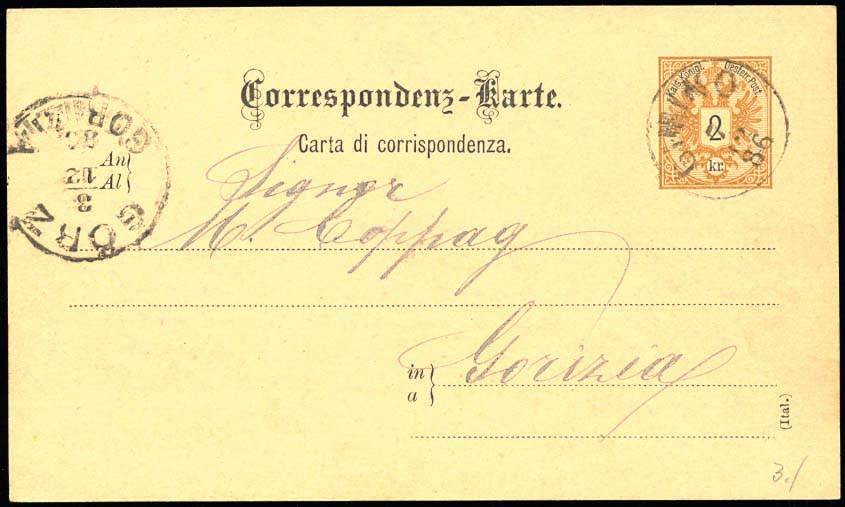 Correspondenz-Karte.
Carta di corrispondenza.
Kais. Königl. Oesterr. Post
2
kr.
12
86
GÖRZ
3
12
86
GORIZIA
An
Al
Signor
M. Coppag
in
a
Gorizia
(Ital.)
3./